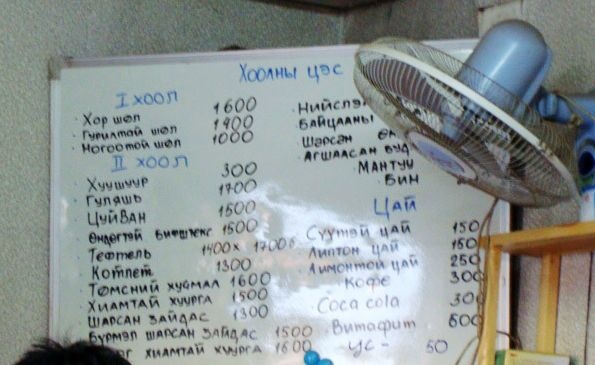 ХООЛНЫ ЦЭС
I ХООЛ
Хар шөл 1600
Гурилтай шөл 1400
Ногоотой шөл 1000
II ХООЛ
Хуушуур 300
Гуляшь 1700
Цуйван 1500
Өндөгтэй бифштекс 1500
Тефтель 1400 1700
Котлет 1300
Төмсний хуурмал 1600
Хиамтай хуурга 1500
Шарсан зайдас 1300
Бүрмэл шарсан зайдас 1500
хиамтай хуурга 1600
Байцааны
Шарсан
Агшаасан
Мантуу
Бин
ЦАЙ
Сүүтэй цай 150
Липтон цай 150
Лимонтой цай 250
Кофе 300
Coca cola 300
Витафит 500
ус - 50